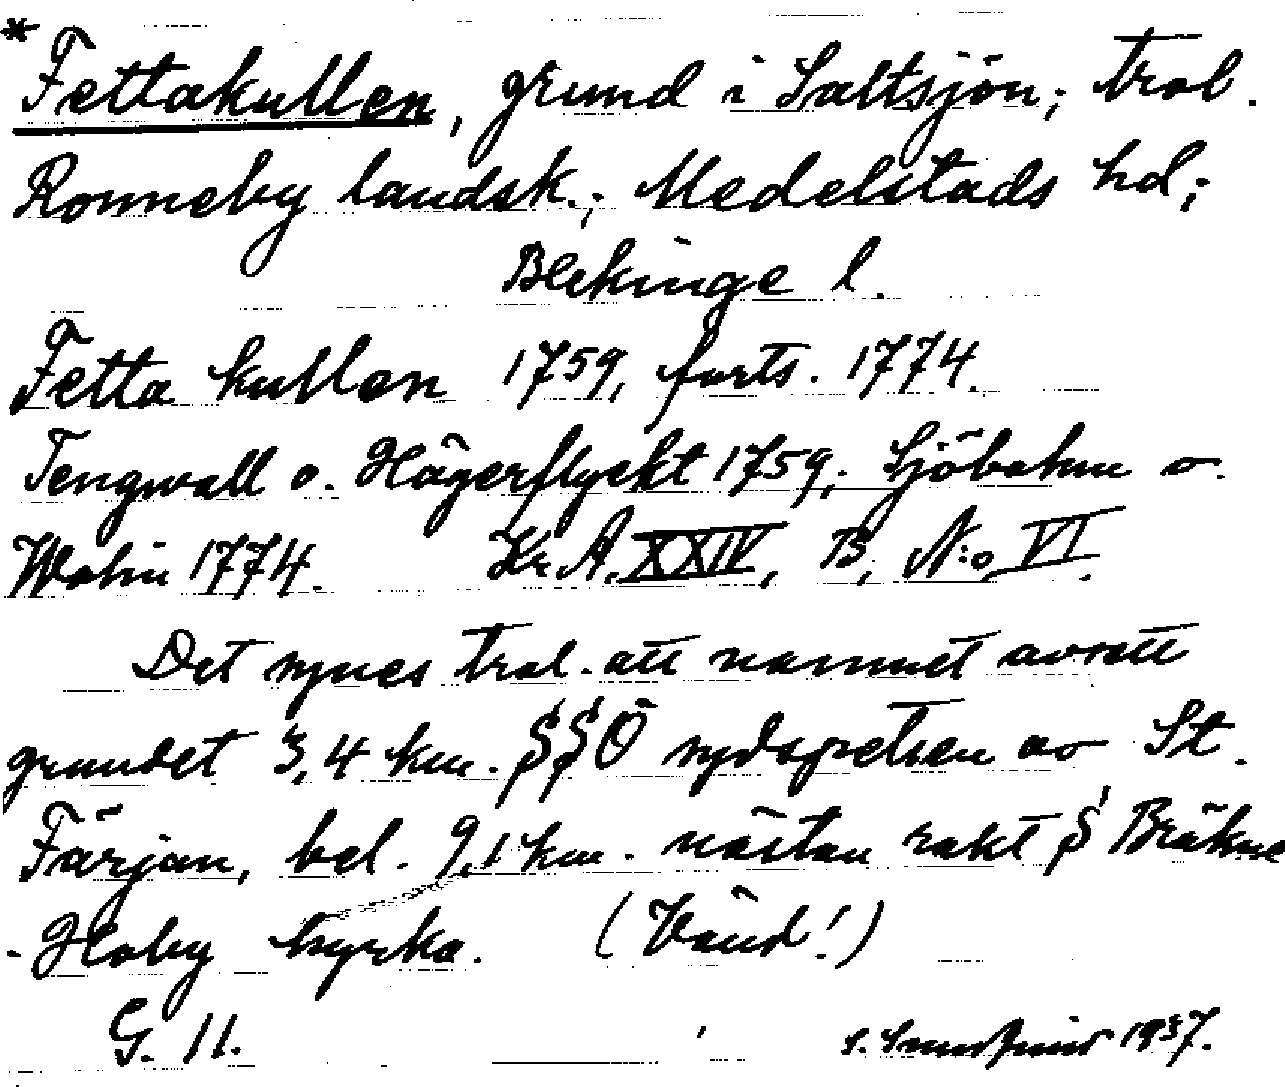 * Fettakullen, grund i Saltsjön; trol.
Ronneby landsk.; Medelstads hd;
Blekinge l.
Fetta kullen 1759, forts. 1774.
Tengwall o. Hägerflyckt 1759; Sjöbohm o.
Wohin 1774. Kr.A. XXIV, B, N:o VI.
Det synes trol. att namnet avsett
grundet 3,4 km. SSÖ sydspetsen av St.
Färjan, bel. 9,1 km. nästan rakt S Bräkne
-Hoby kyrka. (Vänd!)
G. 11. 1937.